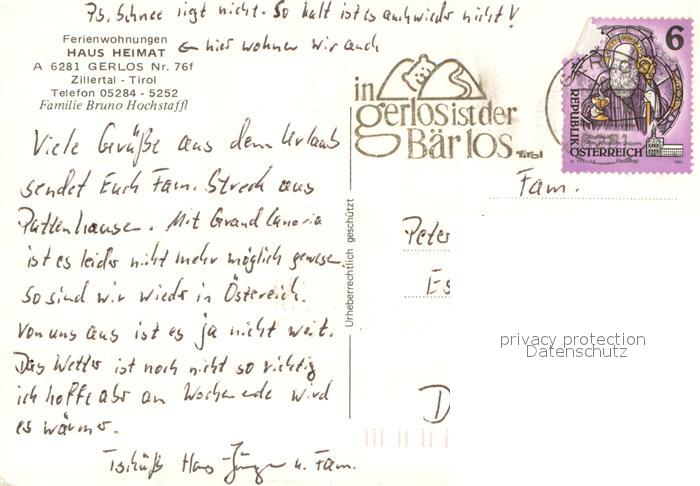 Ps. Schnee liegt nicht. So kalt ist es auch wieder nicht!
Ferienwohnungen
HAUS HEIMAT
A 6281 GERLOS Nr. 76f
Zillertal - Tirol
Telefon 05284 - 5252
Familie Bruno Hochstaffl
← hier wohnen wir auch
in
gerlos ist der
Bär los
Tirol
6
REPUBLIK
ÖSTERREICH
Viele Grüße aus dem Urlaub
sendet Euch Fam. Streck aus
Pattenhausen. Mit Gran Canaria
ist es leider nicht mehr möglich gewesen.
So sind wir wieder in Österreich.
Von uns aus ist es ja nicht weit.
Das Wetter ist noch nicht so richtig
ich hoffe aber am Wochenende wird
es wärmer.
Tschüß Hans-Jürgen u. Fam.
Urheberrechtlich geschützt
Fam.
Peter
Es
D
privacy protection
Datenschutz